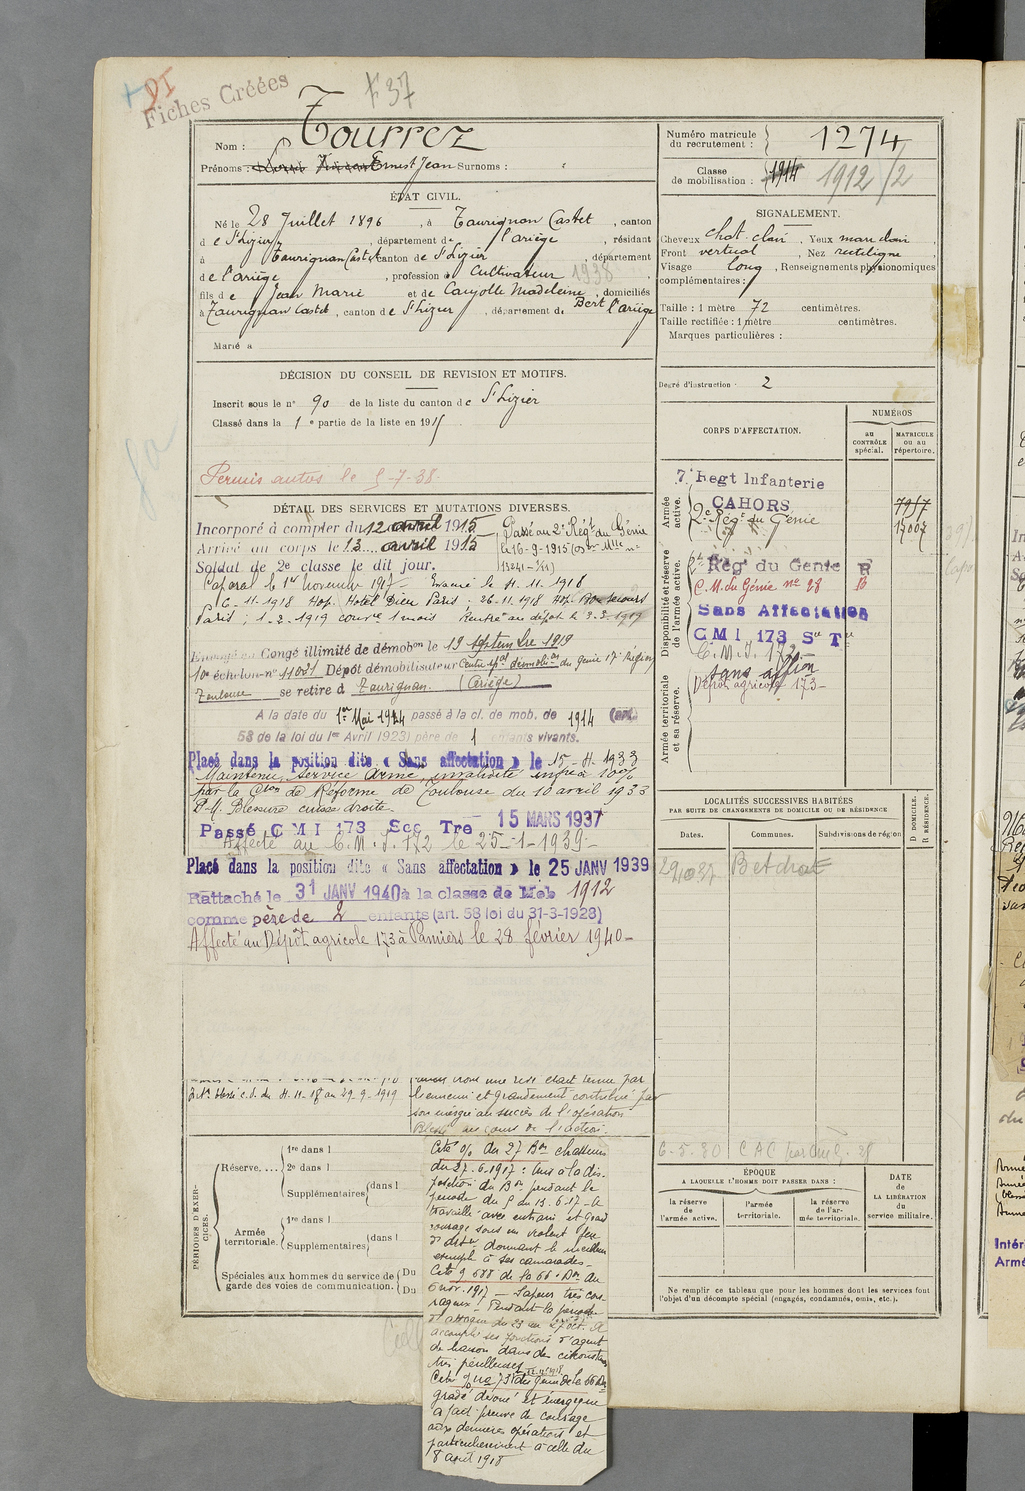 + DI
Fiches Créées
F 37
Nom : Tourrez
Prénoms : Ernest Jean Surnoms :
Numéro matricule du recrutement : 1274
Classe de mobilisation : 1914 1912/2
ÉTAT CIVIL.
Né le 28 Juillet 1896, à Taurignan Castet, canton
de St Lizier, département de l'ariège, résidant
à Taurignan Castet canton de St Lizier, département
de l'ariège, profession de Cultivateur 1938
fils de Jean Marie et de Cayolle Madeleine, domiciliés
à Taurignan Castet, canton de St Lizier, département de l'ariège
Marié à
SIGNALEMENT.
Cheveux chat. clair, Yeux mar. clair,
Front vertical, Nez rectiligne,
Visage long, Renseignements physionomiques
complémentaires :
Taille : 1 mètre 72 centimètres.
Taille rectifiée : 1 mètre centimètres.
Marques particulières :
Degré d'instruction : 2
DÉCISION DU CONSEIL DE REVISION ET MOTIFS.
Inscrit sous le n° 90 de la liste du canton de St Lizier
Classé dans la 1e partie de la liste en 1915
Permis autos le 5-7-38.
CORPS D'AFFECTATION.
NUMÉROS
au CONTRÔLE spécial.
MATRICULE ou au répertoire.
Armée active.
7 Regt Infanterie
CAHORS
2e Régt du Génie
7917
17007
Disponibilité et réserve de l'armée active.
2e Rég' du Genie R
C. M. du Génie n° 28 B
Sans Affectation
CMI 173 Son Tre
C. M. I. 172
sans affon
Dépôt agricole 173
Armée territoriale et sa réserve.
DÉTAIL DES SERVICES ET MUTATIONS DIVERSES.
Incorporé à compter du 12 avril 1915
Arrivé au corps le 13 avril 1915
Soldat de 2e classe le dit jour.
Passé au 2e Régt du Génie
le 16-9-1915
Caporal le 1er Novembre 1917 - Evacué le 11.11.1918
6-11-1918 Hop. Hotel Dieu Paris ; 26-11.1918 Hop. Bon Secours
Paris ; 1-2-1919 conv. 1 mois Rentré au dépôt le 3-3-1919
Envoyé en Congé illimité de démobon le 19 septembre 1919
10e échelon n° 11031 Dépôt démobilisateur Centre spal démobon du Génie 17e Région
Toulouse se retire à Taurignan. (Ariège)
A la date du 1er Mai 1924 passé à la cl. de mob. de 1914 (art.
58 de la loi du 1er Avril 1923) père de 1 enfants vivants.
Placé dans la position dite « Sans affectation » le 15-4-1933
Maintenu Service Armé, invalidité infre à 10%
par la Cion de Réforme de Toulouse du 10 avril 1933
P.M. Blessure cuisse droite.
Passé CMI 173 Sec Tre 15 MARS 1937
Affecté au C.M.I. 172 le 25-1-1939
Placé dans la position dite « Sans affectation » le 25 JANV 1939
Rattaché le 31 JANV 1940 à la classe de Mob 1912
comme père de 2 enfants (art. 58 loi du 31-3-1928)
Affecté au Dépôt agricole 173 à Pamiers le 28 février 1940
LOCALITÉS SUCCESSIVES HABITÉES
PAR SUITE DE CHANGEMENTS DE DOMICILE OU DE RÉSIDENCE
Dates.
Communes.
Subdivisions de région
D DOMICILE. R RÉSIDENCE.
Betchat
6-5-30
blessé c.d. du 11-11-18 au 29-9-1919
l'ennemi et grandement contribué par
son énergie au succès de l'opération
Blessé au cours de l'action.
PÉRIODES D'EXERCICES.
Réserve....
1re dans l
2e dans l
Supplémentaires dans l
Armée territoriale.
1re dans l
2e dans l
Supplémentaires dans l
Spéciales aux hommes du service de garde des voies de communication.
Du
Du
ÉPOQUE
A LAQUELLE L'HOMME DOIT PASSER DANS :
la réserve de l'armée active.
l'armée territoriale.
la réserve de l'armée territoriale.
DATE de LA LIBÉRATION du service militaire.
Ne remplir ce tableau que pour les hommes dont les services font
l'objet d'un décompte spécial (engagés, condamnés, omis, etc.).
Cité % du 27 Bon chasseurs
du 27.6.1917 : Mis à la dis-
position du Bon pendant la
période du 5 au 13.6.17 - a
travaillé avec entrain et grand
courage sous un violent feu
d'artie donnant le meilleur
exemple à ses camarades -
Cité % 688 de la 66e Don du
6 nov. 1917 - Sapeur très cou-
rageux. Pendant la période
d'attaque du 23 au 27 oct. a
accompli ses fonctions d'agent
de liaison dans des circonstances
très périlleuses
Cité % du Génie de la 66 Don
gradé dévoué et énergique
a fait preuve de courage
aux dernières opérations et
particulièrement à celle du
8 août 1918